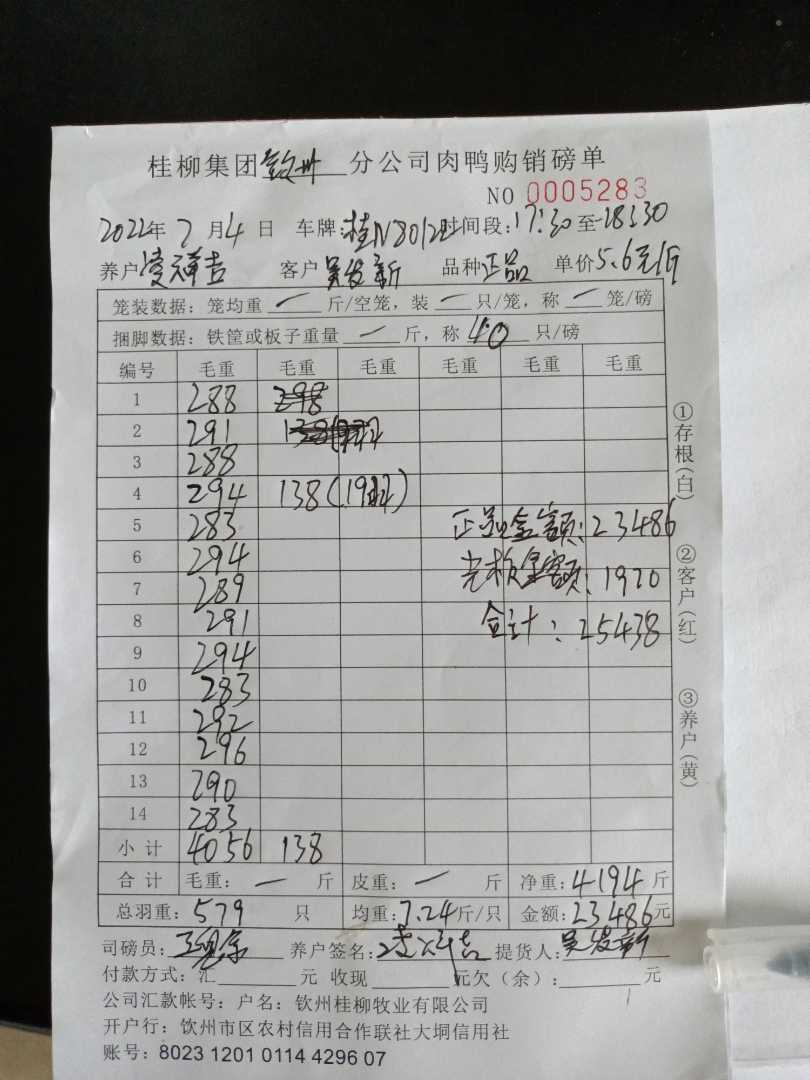 桂柳集团钦州分公司肉鸭购销磅单
NO 0005283
2022年7月4日 车牌:桂N8012 时间段:17:30至18:30
养户凌祥吉 客户吴发新 品种正品 单价5.6元/斤
笼装数据:笼均重 一 斤/空笼,装 一 只/笼,称 一 笼/磅
捆脚数据:铁筐或板子重量 一 斤,称 40 只/磅
编号 毛重 毛重 毛重 毛重 毛重 毛重
1 288 298
2 291 138
3 288
4 294 138(19只)
5 283 正品金额:23486
6 294 光板金额:1920
7 289
8 291 合计:25438
9 294
10 283
11 292
12 296
13 290
14 283
小计 4056 138
合计 毛重: 一 斤 皮重: 一 斤 净重:4194斤
总羽重:579 只 均重:7.24斤/只 金额:23486元
司磅员: 养户签名: 提货人:吴发新
付款方式:汇 元 收现 元欠(余): 元
公司汇款帐号:户名:钦州桂柳牧业有限公司
开户行:钦州市区农村信用合作联社大垌信用社
账号:8023 1201 0114 4296 07
①存根(白)
②客户(红)
③养户(黄)